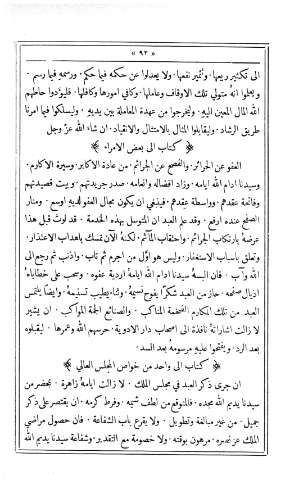 « ٩٢ »
الى تكثير ريعها وتثمير نفعها ولا يعدلوا عن حكمه فيما حكم ورسمه فيما رسم
ويعلموا انه متولي تلك الاوقاف وعاملها وكافي امورها وكافلها فليؤدوا حاطهم
الله المال المعين اليه وليخرجوا من عهدة المعاملة بين يديه وليسلكوا فيما امرنا
طريق الرشاد وليقابلوا المثال بالامتثال والانقياد ان شاء الله عز وجل
﴿ كتاب الى بعض الامراء ﴾
العفو عن الجرائر والصفح عن الجرائم من عادة الاكابر وسيرة الاكارم
وسيدنا ادام الله ايامه وزاد افضاله وانعامه صدر جريدتهم وبيت قصيدتهم
وفائقة عقدهم وواسطة عقدهم فينبغي ان يكون مجال العفو لديه اوسع ومنار
الصفح عنده ارفع وقد علم العبد ان المتوسل بهذه الخدمة قد لوث قبل هذا
عرضه بارتكاب الجرائم واحتقاب المآثم لكنه الآن تمسك باهداب الاعتذار
وتعلق باسباب الاستغفار وليس هو اول من اجرم ثم تاب واذنب ثم رجع الى
الله وآب فان البسه سيدنا ادام الله ايامه اردية عفوه وسحب على خطاياه
اذيال صفحه حاز من العبد شكرًا يفوح نسيمه وثناء يطيب تسنيمه وايضًا يلتمس
العبد من تلك المكارم الضخمة المناكب والصنائع الجمة المواكب ان يشير
لا زالت اشاراته نافذة الى اصحاب دار الادوية حرسهم الله وعمرها ليقبلوه
بعد الرد ويفتحوا عليه مرسومه بعد السد
﴿ كتاب الى واحد من خواص المجلس العالي ﴾
ان جرى ذكر العبد في مجلس الملك لا زالت ايامه زاهرة بمحضر من
سيدنا يديم الله مجده فالمتوقع من لطف شيمه وفرط كرمه ان يقتصر على ذكر
جميل من غير مبالغة وتطويل ولا يقرع باب الشفاعة فان حصول مراضي
الملك عز نصره مرهون بوقته ولا خصومة مع التقدير وشفاعة سيدنا يديم الله